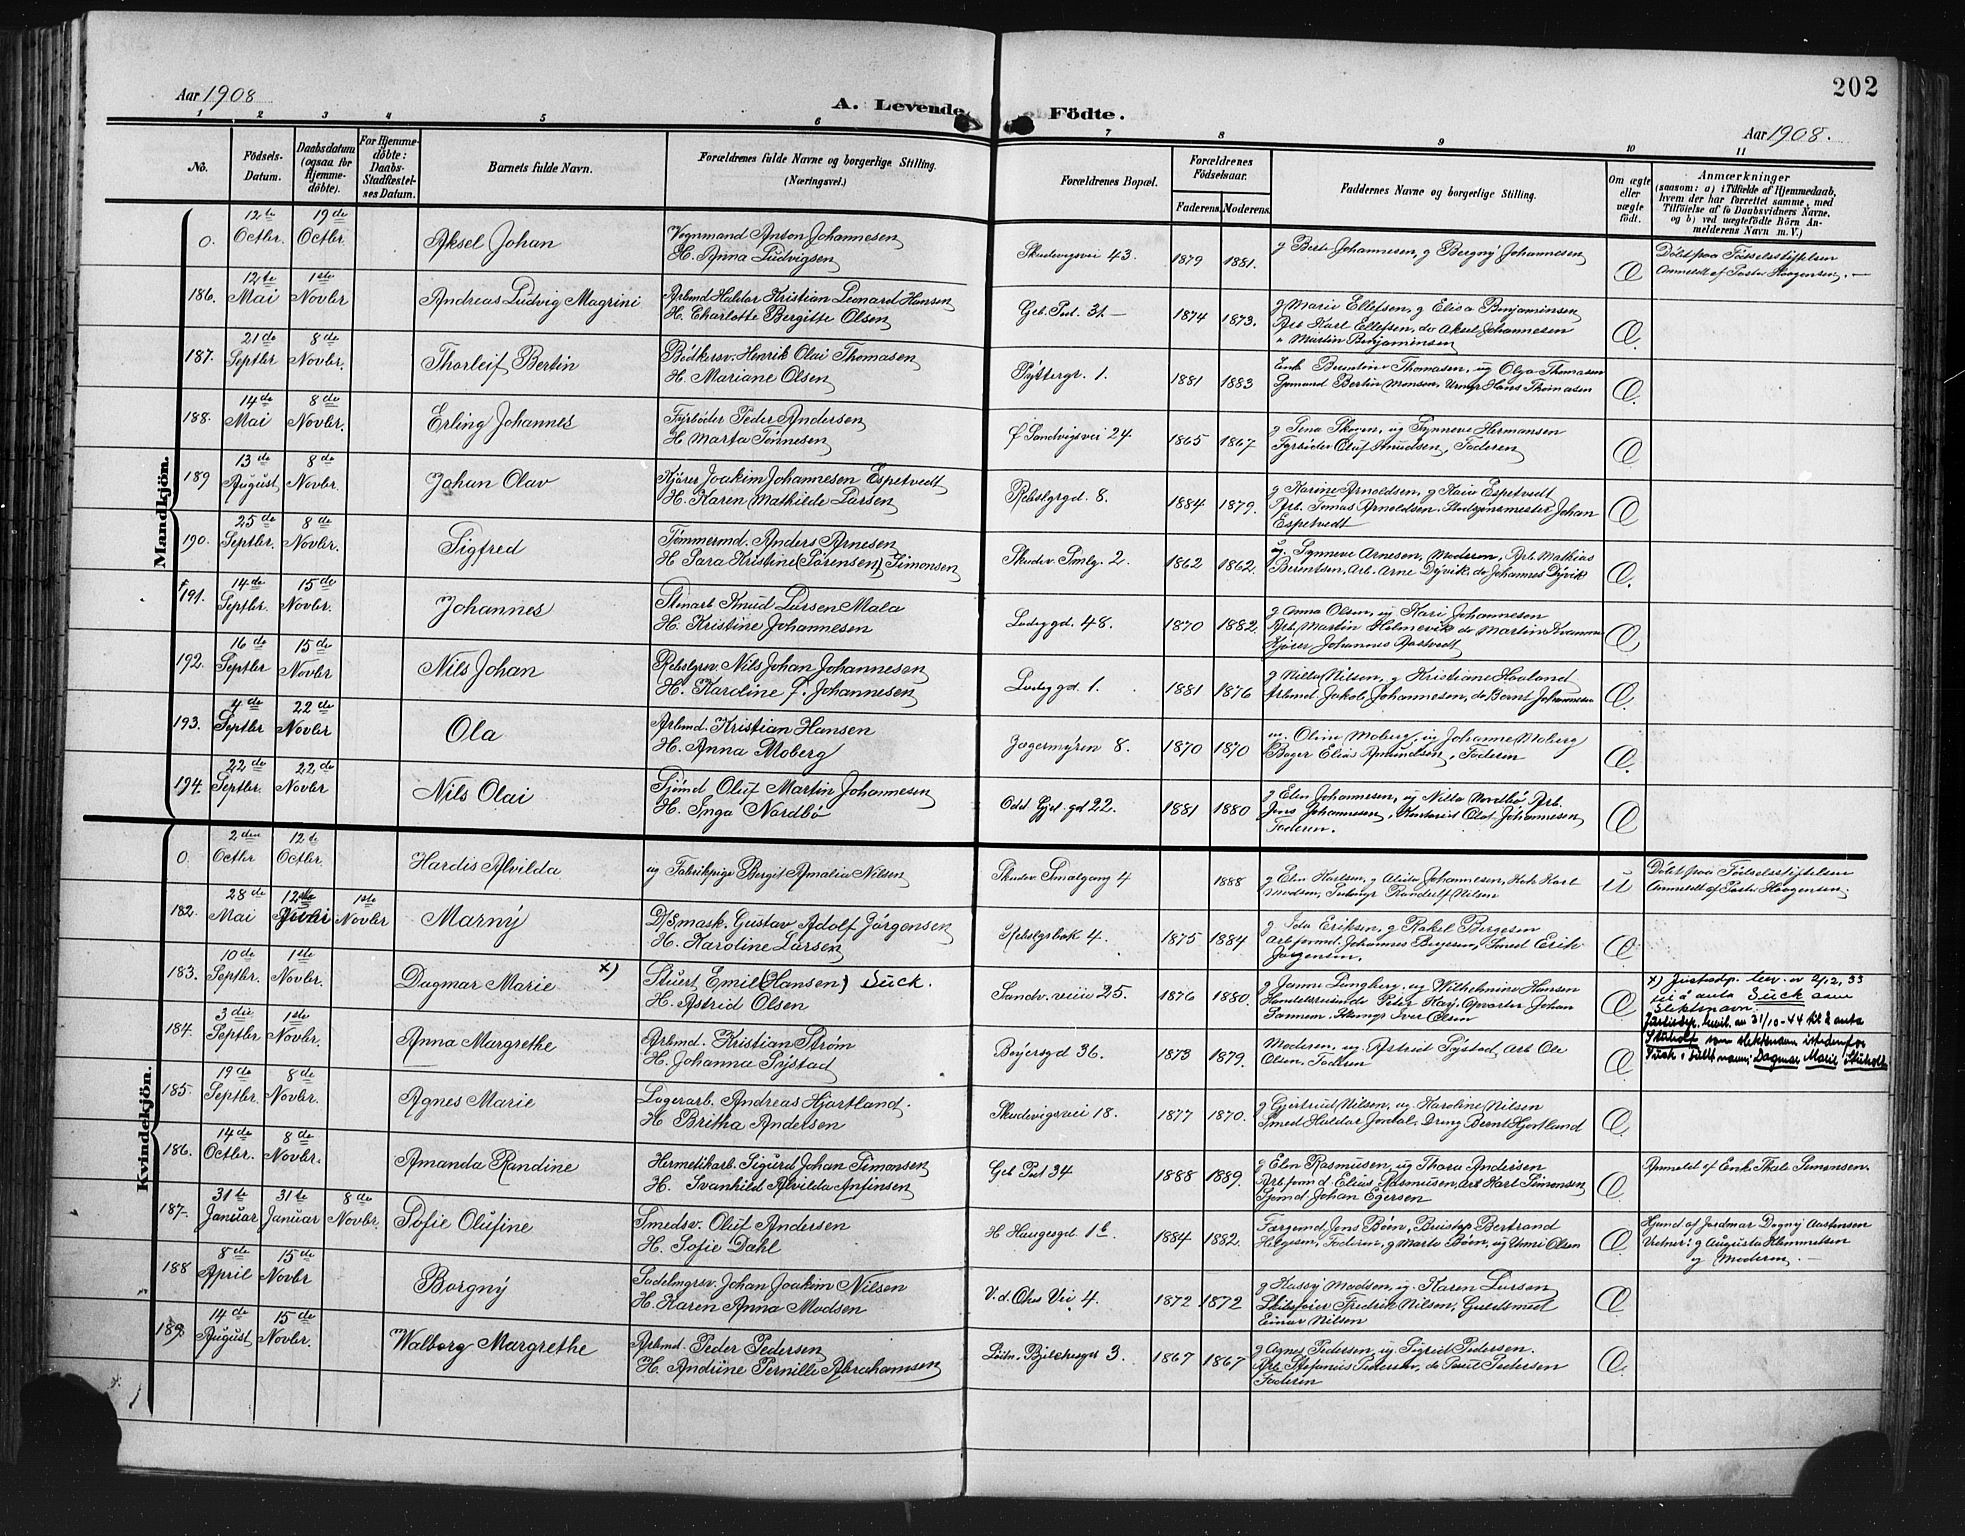 202
Aar 1908
A. Levende Födte.
Aar 1908.
1 2 3 4 5 6 7 8 9 10 11
No.
Födsels-Datum.
Daabsdatum (ogsaa for Hjemmedöbte).
For Hjemmedöbte: Daabs-Stadfæstelses Datum.
Barnets fulde Navn.
Forældrenes fulde Navne og borgerlige Stilling.
(Næringsvei.)
Forældrenes Bopæl.
Forældrenes Födselsaar.
Faderens. Moderens.
Faddernes Navne og borgerlige Stilling.
Om ægte eller uægte födt.
Anmærkninger
(saasom: a) i Tilfælde af Hjemmedaab,
hvem der har forrettet samme, med
Tilföielse af to Daabsvidners Navne,
og b) ved uægtefödte Börn An-
melderens Navn m. V.)
Mandkjön.
0. 12te Octbr. 19de Octbr. Aksel Johan
Vognmand Anton Johannesen
H. Anna Ludvigsen
Skudevigsvei 43. 1879 1881.
g Berte Johannesen, g Bergny Johannesen
Æ
Döbt paa Fødselsstiftelsen
Anmeldt af Pastor Haagensen.
186. 12te Mai 1ste Novbr Andreas Ludvig Magrini
Arbmd Haldor Kristian Leonard Hansen
H. Charlotte Bergitte Olsen
Geb. Pod. 31. 1874 1873.
g Marie Ellefsen, g Elisa Benjaminsen
Arb Karl Ellefsen, do Aksel Johannesen
" Martin Benjaminsen
Æ.
187. 21de Septbr 8de Novbr. Thorleif Bertin
Bödkersv. Henrik Olai Thomasen
H. Mariane Olsen
Pyttergr. 1. 1881 1883
Enk Berntine Thomasen, ug Olga Thomasen
Sjømand Bertin Monsen, Urmgr Hans Thomasen
Æ.
188. 14de Mai 8de Novbr. Erling Johannes
Fyrbøder Peder Andersen
H Marta Tønnesen
Sandvigsvei 24 1865 1867
g Sena Skaven, ug Synneve Hermansen
Fyrbøder Oluf Knudsen, Faderen
Æ
189 13de August 8de Novbr. Johan Olav
Kjører Joakim Johannesen Espetvedt
H. Karen Mathilde Larsen
Rebslgrgd. 8. 1884 1879.
g Karine Arnoldsen, g Kaia Espetvedt
Arb. Tomas Arnoldsen. Johan
Espetvedt
Æ
190. 25de Septbr. 8de Novbr. Sigfred
Tømmermd. Anders Arnesen
H. Sara Kristine (Sørensen) Simonsen
Skudev. Smlg. 2. 1862 1862.
ug. Synneve Arnesen, Moderen, Arb Mathias
Berentsen, Arb. Arne Dyvik, do Johannes Dyvik
Æ.
191. 14de Septbr. 15de Novbr. Johannes
Stenarb Knud Larsen Mala
H. Kristine Johannesen
Ladeggd. 48. 1870 1882.
g Anna Olsen, ug Kari Johannesen
Arb. Martin Holmevik, do Martin Kvamme
Kjører Johannes
Æ
192. 16de Septbr 15de Novbr Nils Johan
Rebslgrsv. Nils Johan Johannesen
H. Karoline f. Johannesen
Ladeggd. 1. 1881 1876
g Nilla Nilsen, g Kristiane Haaland
Arbmd Jakob Johannesen, do Bernt Johannesen
Æ.
193. 4de Septbr 22de Novbr Ola
Arbmd. Kristian Hansen
H. Anna Moberg
Jægermyren 8. 1870 1870
ug. Oline Moberg, ug Johanne Moberg
Bager Elias Amundsen, Faderen
Æ.
194. 22de Septbr. 22de Novbr Nils Olai
Sjømd Oluf Martin Johannesen
H. Inga Nordbø
Odd Gjel. gd 22. 1881 1880
g Elen Johannesen, ug Nilla Nordbø Arb.
Jens Johannesen, Kontorist Olaf Johannesen
Faderen.
Æ
Kvindekjön.
0. 2den Octbr 12te Octbr. Hardis Alvilda
ug Fabrikpige Bergit Amalia Nilsen
Skudev. Smalgang 4 1888
g Elen Karlsen, g Aleta Johannesen, Karl
Madsen, Randulf Nilsen
U
Döbt paa Fødselsstiftelsen
Anmeldt af Pastor Haagensen
182. 28de Mai 12te Juni 1ste Novbr Marny
D/Smask. Gustav Adolf Jørgensen
H. Karoline Larsen
Rebslgrbak 4. 1875 1884
g Ida Eriksen, g Rakel Bergesen
Arbformd. Johannes Bergesen, Smed Erik
Jørgensen.
Æ
183. 10de Septbr. 1ste Novbr. Dagmar Marie x)
Stuert Emil (Hansen) Suck.
H. Astrid Olsen
Sandv. veiu 25. 1876 1880.
g Janne Lungberg, ug Wilhelmine Hansen
Handelsreisende Peder Kay, Opvarter Johan
Sannem, Skomgr Iver Olsen
Æ
x) Justisdp. bev. av 2/12, 33
til å anta Suck som
slektsnavn.
Justisdep. bevil. av 31/10-44 til å anta
Stuholt som slektsnavn istedenfor
Suck, fullt navn: Dagmar Marie Stuholt
184. 3die Septbr 1ste Novbr. Anna Margrethe
Arbmd. Kristian Strøm
H. Johanna Systad
Bøyersgd 36. 1873 1879.
Moderen, ug Astrid Systad, Arb Ole
Olsen, Faderen
Æ
185. 19de Septbr. 8de Novbr. Agnes Marie
Lagerarb. Andreas Hjortland.
H Britha Andersen
Skudevigsvei 18. 1877 1870.
g Gjertrud Nilsen, ug Karoline Nilsen
Smed Haldor Jordal, Dreng Bernt Hjortland
Æ.
186. 14de Octbr. 8de Novbr. Amanda Randine
Hermetikarb. Sigurd Johan Simonsen
H. Svanhild Alvilda Anfinsen
Geb Pod 34 1888 1889.
g Elen Rasmusen, ug Thora Andersen
Arbformd. Elias Rasmusen, Arb Karl Simonsen
Sjømd. Johan Egersen
Æ
Anmeldt af Enke Thale Simonsen.
187. 31te Januar 31te Januar 8de Novbr. Sofie Olufine
Smedsv. Oluf Andersen
H. Sofie Dahl
H Haugesgd. 1b 1884 1882.
Færgemd Jens Bøen, Bertrand
Helgesen, Faderen, g Marta Bøen, ug Unni Olsen
Æ
Hjmd af Jordmor Dagny Aastensen
Vidner: g Augusta Klemmetsen
og Moderen.
188 8de April 15de Novbr Borgny
Sadelmgrsv. Johan Joakim Nilsen
H. Karen Anna Madsen
V. d. Ohes Vei 4. 1872 1872
g Madsen, ug Karen Larsen
Skibsfører Fredrik Nilsen, Guldsmed
Einar Nilsen
Æ
189 14de August 15de Novbr. Walborg Margrethe
Arbmd. Peder Pedersen
H. Andrine Pernille Abrahamsen
Løitn. 3. 1867 1867
g Agnes Pedersen, ug Sigrid Pedersen.
Arb Stefanus Pedersen, do Pedersen
Faderen
Æ